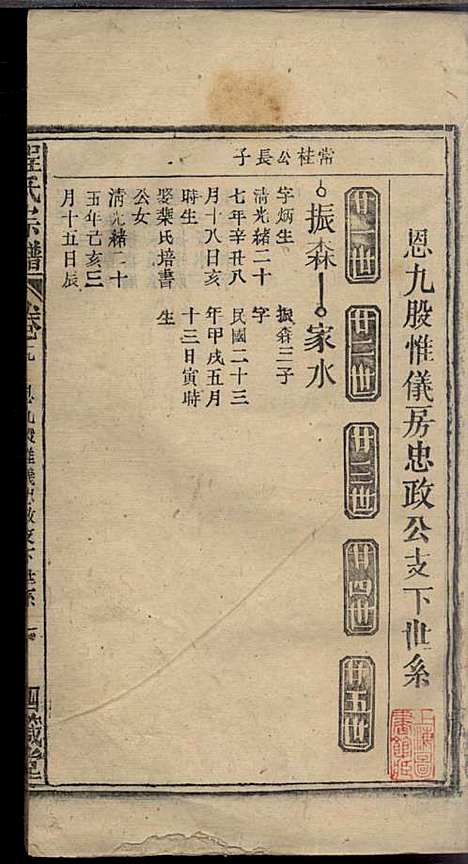 恩九股惟儀房忠政公支下世系
廿一世
廿二世
廿三世
廿四世
廿五世
常桂公長子
振森
家水
字炳生
清光緒二十
七年辛丑八
月十八日亥
時生
娶葉氏培書
公女
清光緒二十
五年己亥三
月十五日辰
振森三子
字
民國二十三
年甲戌五月
十三日寅時
生
程氏宗譜
卷之九
恩九股惟儀忠政支下世系
一
上海圖
書館藏